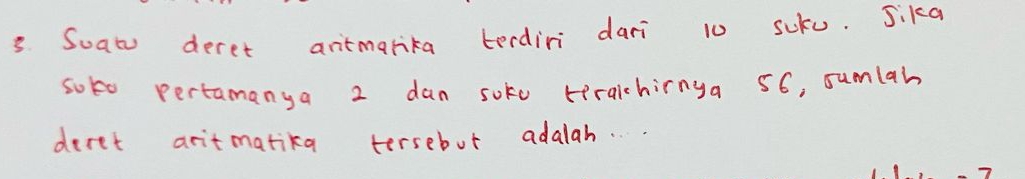 3. Suatu deret aritmatika terdiri dari 10 suku. Jika
suku pertamanya 2 dan suku terakhirnya 56, jumlah
deret aritmatika tersebut adalah ....
= 7